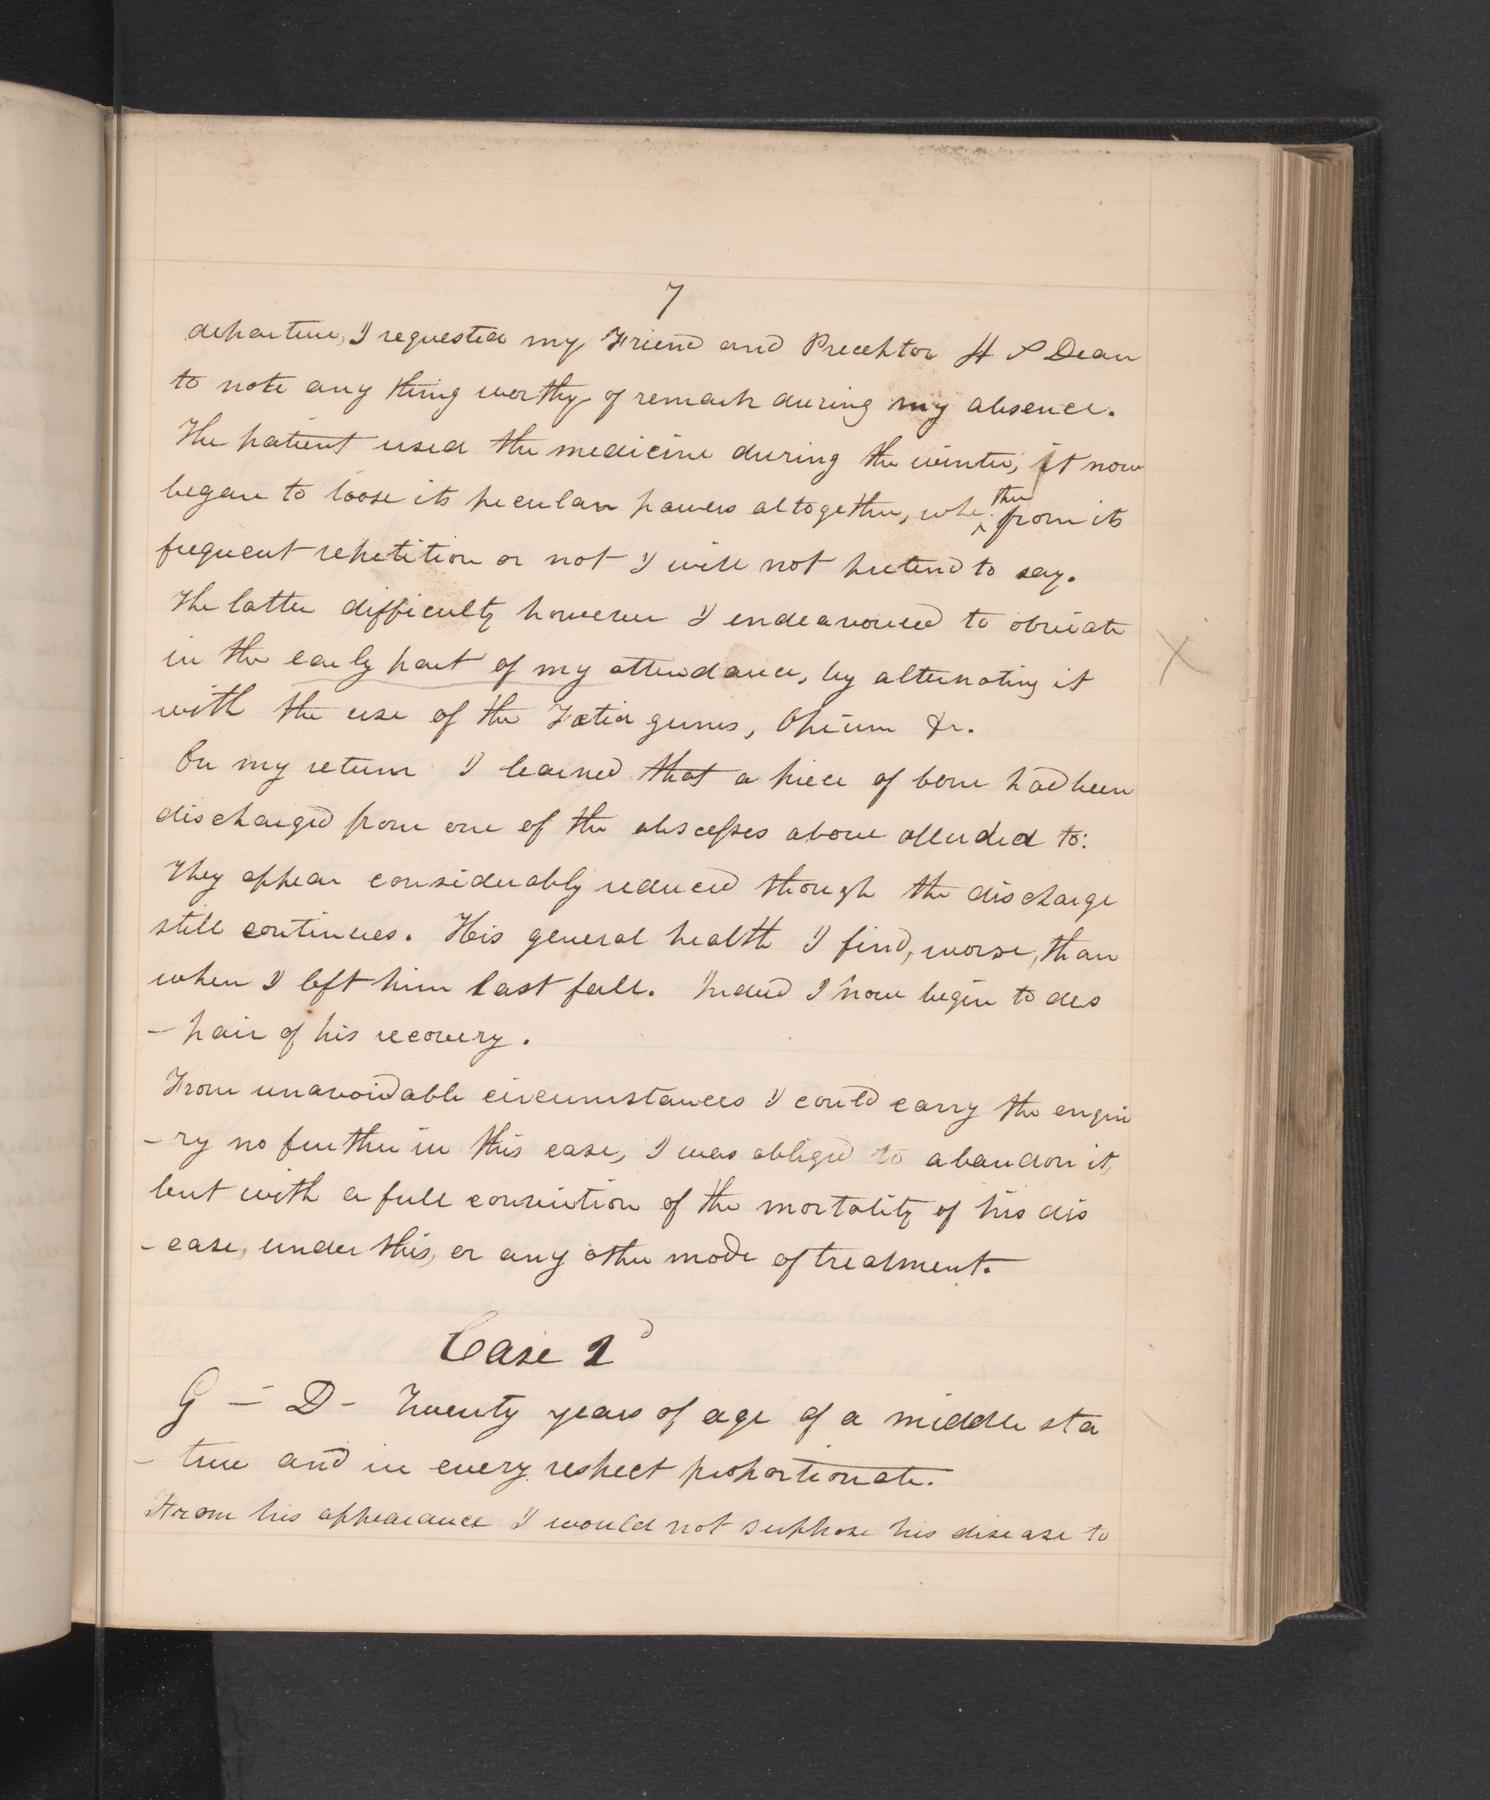 7
departure, I requested my Friend and Preceptor H S Dean
to note any thing worthy of remark during my absence.
The patient used the medicine during the winter, it now
began to loose its peculiar powers altogether, whe ther from its
frequent repetition or not I will not pretend to say.
The latter difficulty however I endeavoured to obviate
in the early part of my attendance, by alternating it
with the use of the Fœtid gums, Opium &c.
On my return I learned that a piece of bone had been
discharged from one of the abscesses above alluded to:
They appear considerably reduced though the discharge
still continues. His general health I find, worse, than
when I left him last fall. Indeed I now begin to des
- pair of his recovery.
From unavoidable circumstances I could carry the enqui
- ry no further in this case, I was obliged to abandon it,
but with a full conviction of the mortality of his dis
- ease, under this, or any other mode of treatment.
Case 2d
G - D - Twenty years of age of a middle sta
- ture and in every respect proportionate.
From his appearance I would not suppose his disease to
X